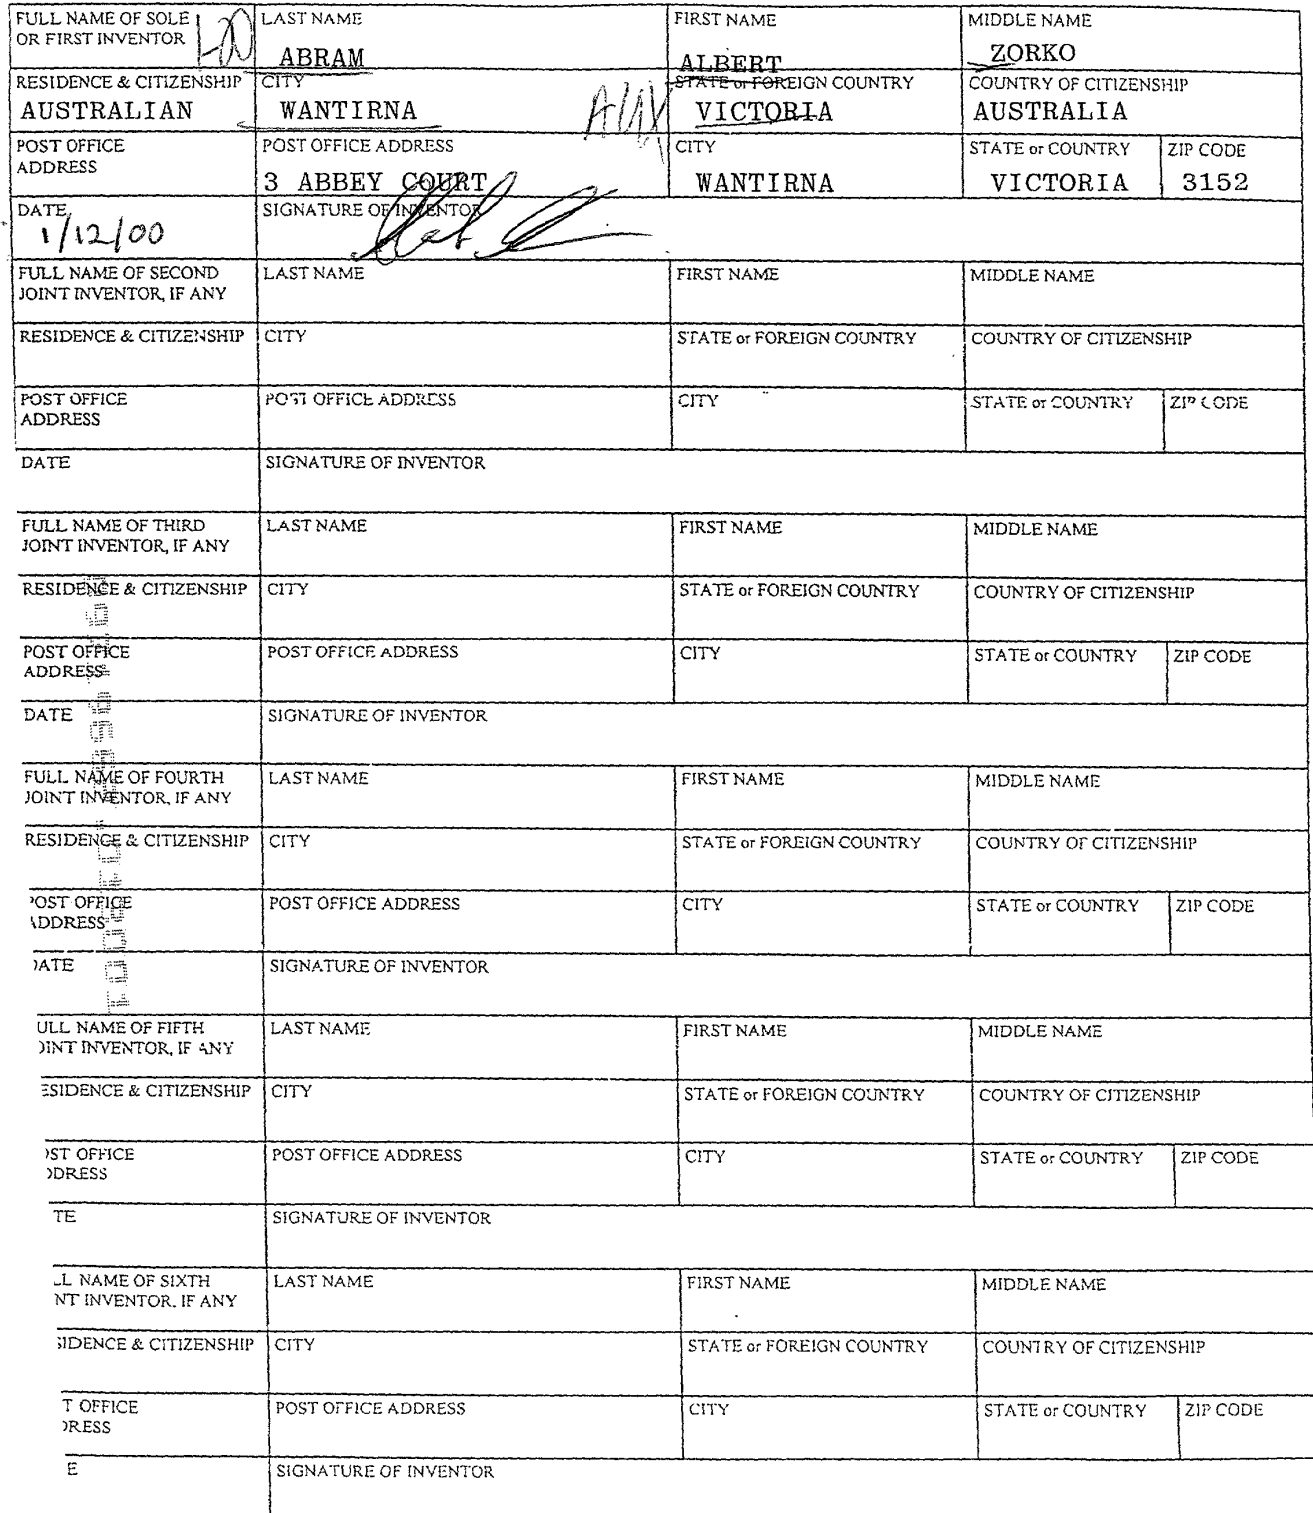 FULL NAME OF SOLE OR FIRST INVENTOR 1-00 LAST NAME ABRAM FIRST NAME ALBERT MIDDLE NAME ZORKO
RESIDENCE & CITIZENSHIP AUSTRALIAN CITY WANTIRNA AUX STATE or FOREIGN COUNTRY VICTORIA COUNTRY OF CITIZENSHIP AUSTRALIA
POST OFFICE ADDRESS POST OFFICE ADDRESS 3 ABBEY COURT CITY WANTIRNA STATE or COUNTRY VICTORIA ZIP CODE 3152
DATE 1/12/00 SIGNATURE OF INVENTOR
FULL NAME OF SECOND JOINT INVENTOR, IF ANY LAST NAME FIRST NAME MIDDLE NAME
RESIDENCE & CITIZENSHIP CITY STATE or FOREIGN COUNTRY COUNTRY OF CITIZENSHIP
POST OFFICE ADDRESS POST OFFICE ADDRESS CITY STATE or COUNTRY ZIP CODE
DATE SIGNATURE OF INVENTOR
FULL NAME OF THIRD JOINT INVENTOR, IF ANY LAST NAME FIRST NAME MIDDLE NAME
RESIDENCE & CITIZENSHIP CITY STATE or FOREIGN COUNTRY COUNTRY OF CITIZENSHIP
POST OFFICE ADDRESS POST OFFICE ADDRESS CITY STATE or COUNTRY ZIP CODE
DATE SIGNATURE OF INVENTOR
FULL NAME OF FOURTH JOINT INVENTOR, IF ANY LAST NAME FIRST NAME MIDDLE NAME
RESIDENCE & CITIZENSHIP CITY STATE or FOREIGN COUNTRY COUNTRY OF CITIZENSHIP
POST OFFICE ADDRESS POST OFFICE ADDRESS CITY STATE or COUNTRY ZIP CODE
ATE SIGNATURE OF INVENTOR
ULL NAME OF FIFTH INT INVENTOR, IF ANY LAST NAME FIRST NAME MIDDLE NAME
ESIDENCE & CITIZENSHIP CITY STATE or FOREIGN COUNTRY COUNTRY OF CITIZENSHIP
OST OFFICE DDRESS POST OFFICE ADDRESS CITY STATE or COUNTRY ZIP CODE
TE SIGNATURE OF INVENTOR
LL NAME OF SIXTH NT INVENTOR, IF ANY LAST NAME FIRST NAME MIDDLE NAME
SIDENCE & CITIZENSHIP CITY STATE or FOREIGN COUNTRY COUNTRY OF CITIZENSHIP
T OFFICE RESS POST OFFICE ADDRESS CITY STATE or COUNTRY ZIP CODE
E SIGNATURE OF INVENTOR